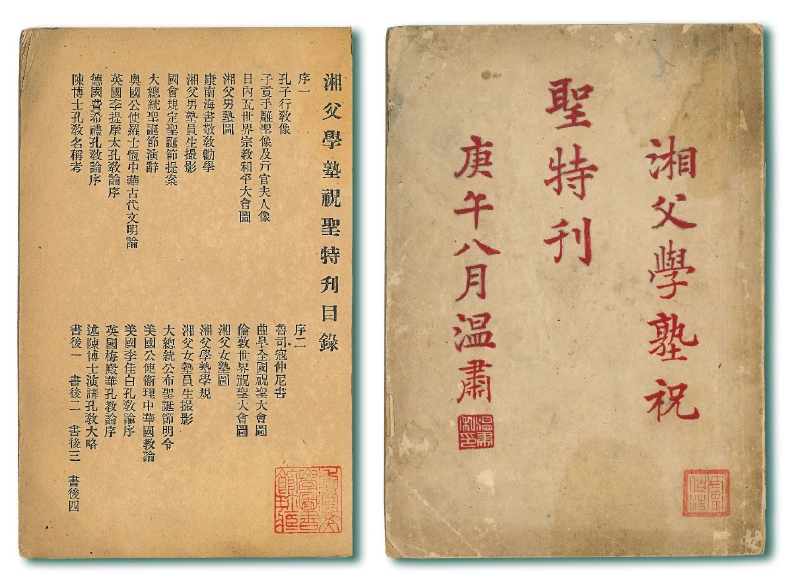 湘父學塾祝
聖特刊
庚午八月溫肅
溫肅私印
湘父學塾祝聖特刊目錄
序一
孔子行教像
子貢手雕聖像及亓官夫人像
日內瓦世界宗教和平大會圖
湘父男塾圖
康南海書敬教勸學
湘父男塾員生撮影
國會規定聖誕節提案
大總統聖誕節演辭
奧國公使羅士恆中華古代文明論
英國李提摩太孔教論序
德國費希禮孔教論序
陳博士孔教名稱考
序二
魯司寇仲尼書
曲阜全國祝聖大會圖
倫敦世界祝聖大會圖
湘父女塾圖
湘父學塾學規
湘父女塾員生撮影
大總統公布聖誕節明令
美國公使衛理中華國教論
美國李佳白孔教論序
英國梅殿華孔教論序
述陳博士演講孔教大略
書後一 書後二 書後三 書後四